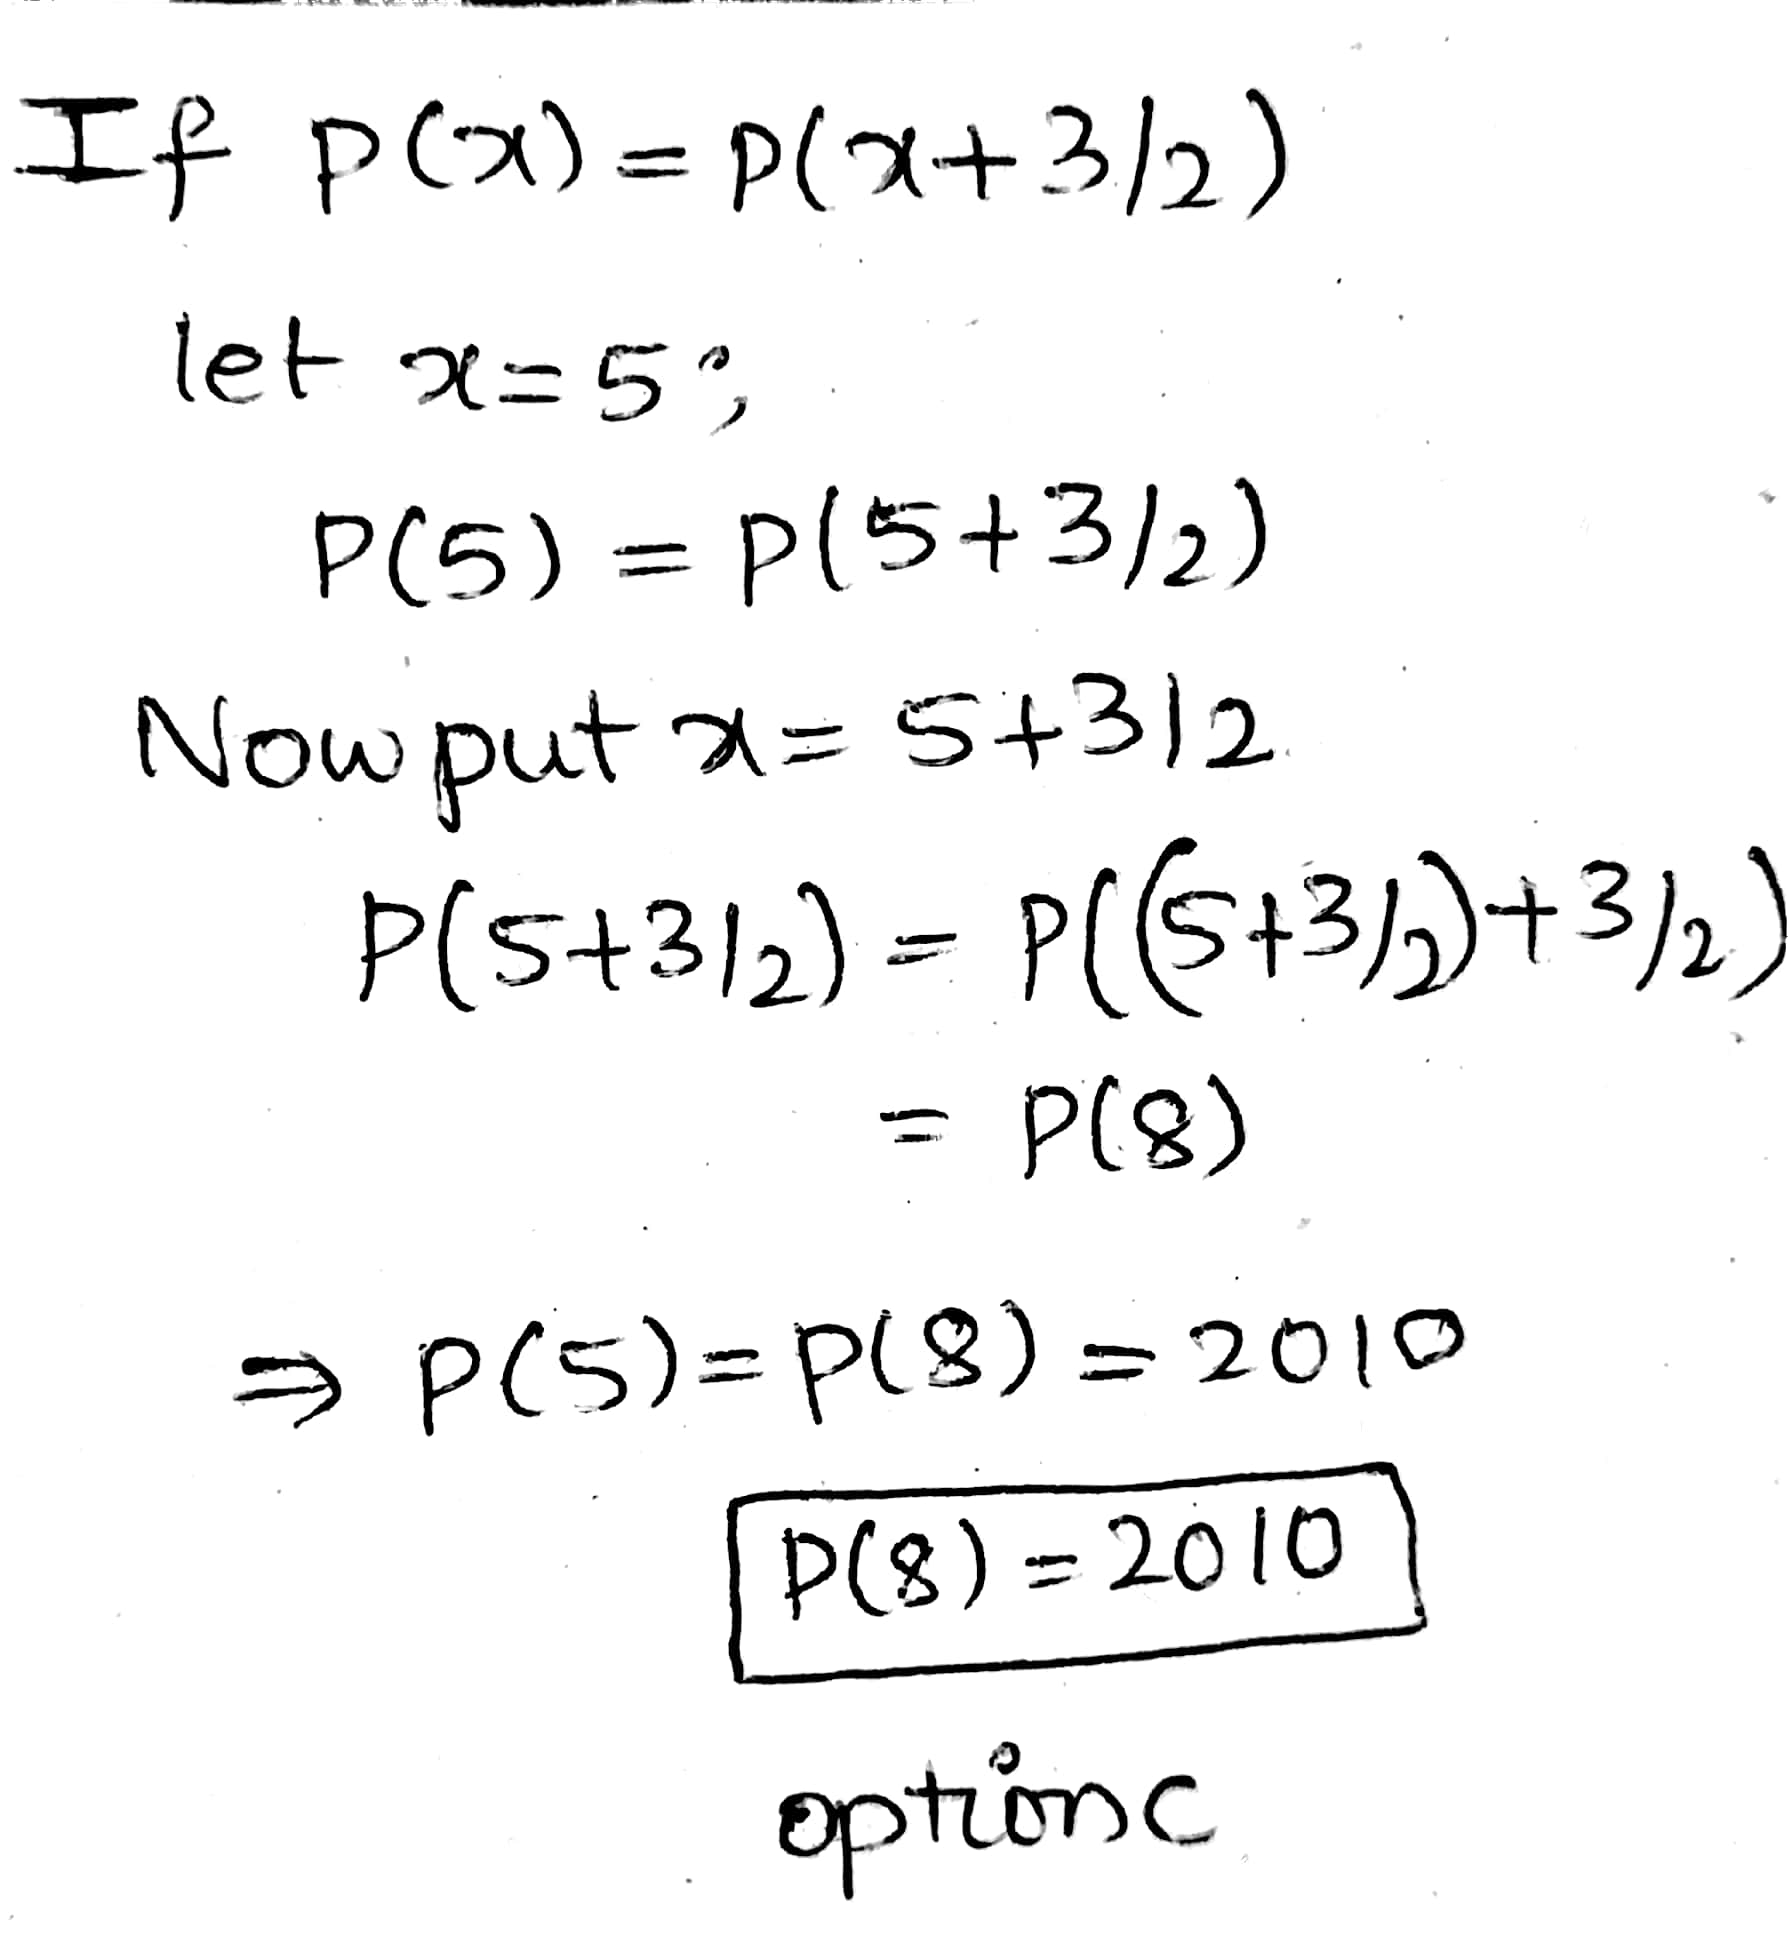 If P(x) = P(x+3/2)
let x=5;
P(5) = P(5+3/2)
Now put x= 5+3/2
P(5+3/2) = P((5+3/2)+3/2)
= P(8)
⇒ P(5)= P(8) = 2010
P(8) = 2010
option C